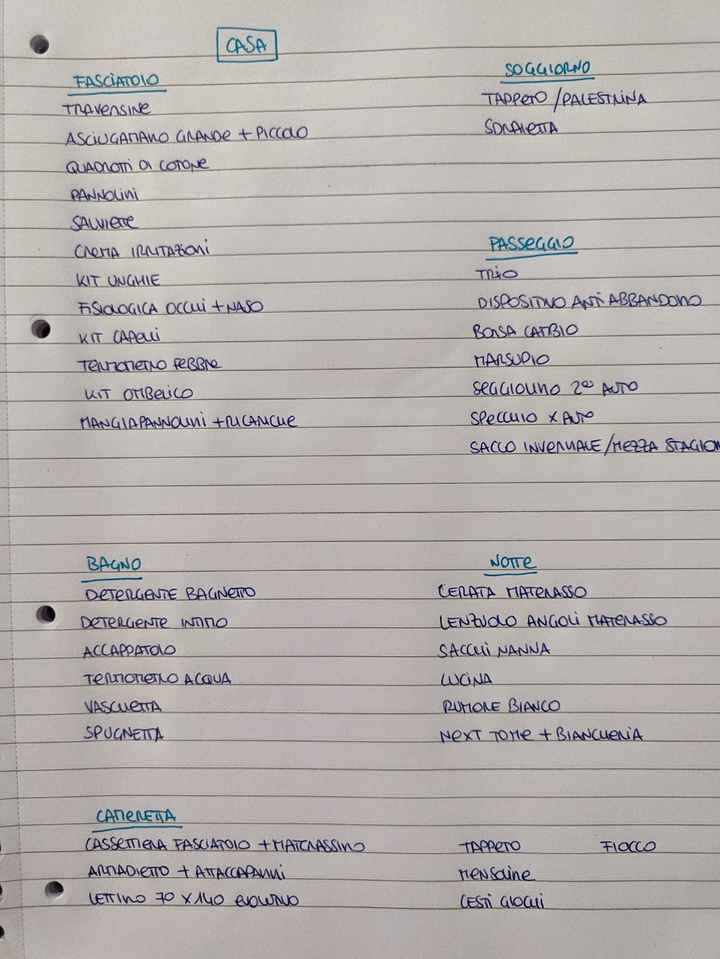 CASA
FASCIATOIO
TRAVERSINE
ASCIUGAMANO GRANDE + PICCOLO
QUADROTTI DI COTONE
PANNOLINI
SALVIETTE
CREMA IRRITAZIONI
KIT UNGHIE
FISIOLOGICA OCCHI + NASO
KIT CAPELLI
TERMOMETRO FEBBRE
KIT OMBELICO
MANGIAPANNOLINI + RICARICHE
SOGGIORNO
TAPPETO / PALESTRINA
SDRAIETTA
PASSEGGIO
TRIO
DISPOSITIVO ANTI ABBANDONO
BORSA CAMBIO
MARSUPIO
SEGGIOLINO 2ª AUTO
SPECCHIO X AUTO
SACCO INVERNALE / MEZZA
BAGNO
DETERGENTE BAGNETTO
DETERGENTE INTIMO
ACCAPPATOIO
TERMOMETRO ACQUA
VASCHETTA
SPUGNETTA
NOTTE
CERATA MATERASSO
LENZUOLO ANGOLI MATERASSO
SACCHI NANNA
LUCINA
RUMORE BIANCO
NEXT TO ME + BIANCHERIA
CAMERETTA
CASSETTIERA FASCIATOIO + MATERASSINO
ARMADIETTO + ATTACCAPANNI
LETTINO 70 X 140 EVOLUTIVO
TAPPETO
MENSOLINE
CESTI GIOCHI
FIOCCO